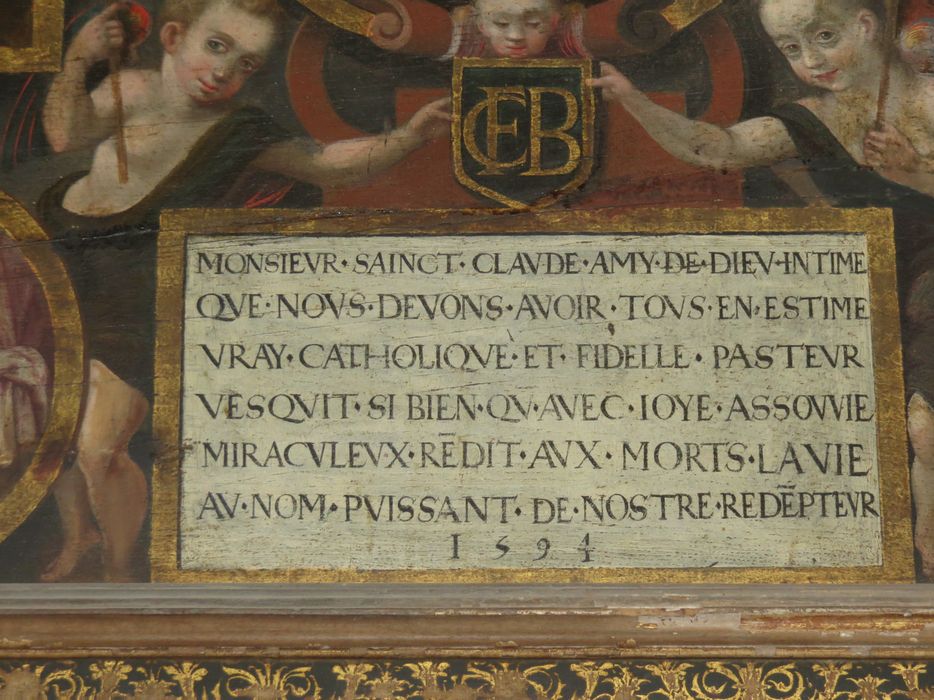 CFB
MONSIEVR·SAINCT·CLAVDE·AMY·DE·DIEV·INTIME
QVE·NOVS·DEVONS·AVOIR·TOVS·EN·ESTIME
VRAY·CATHOLIQVE·ET·FIDELLE·PASTEVR
VESQVIT·SI BIEN·QV·AVEC·IOYE·ASSOVVIE
MIRACVLEVX·RĒDIT·AVX·MORTS·LA VIE
AV·NOM·PVISSANT·DE·NOSTRE·REDĒPTEVR
1594